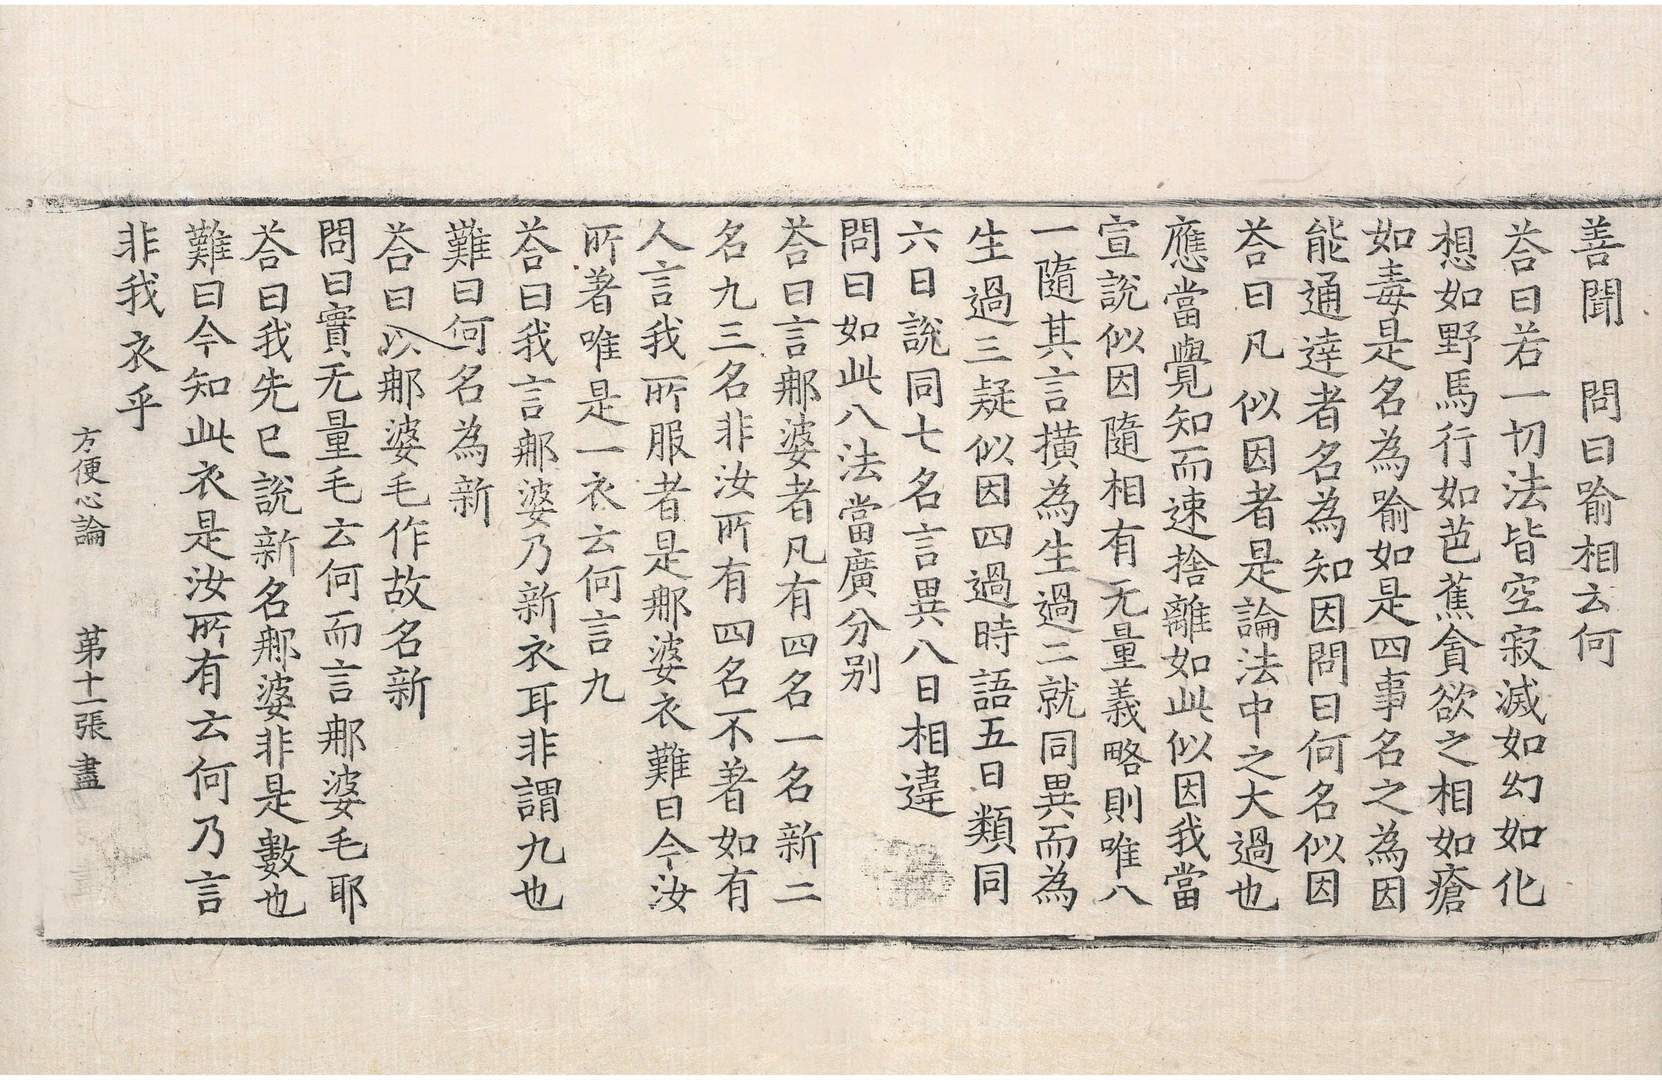 善聞　問曰喻相云何
荅曰若一切法皆空寂滅如幻如化
想如野馬行如芭蕉貪欲之相如瘡
如毒是名為喻如是四事名之為因
能通達者名為知因問曰何名似因
荅曰凡似因者是論法中之大過也
應當覺知而速捨離如此似因我當
宣說似因隨相有无量義略則唯八
一隨其言橫為生過二就同異而為
生過三疑似因四過時語五曰類同
六曰說同七名言異八曰相違
問曰如此八法當廣分别
荅曰言那婆者凡有四名一名新二
名九三名非汝所有四名不著如有
人言我所服者是那婆衣難曰今汝
所著唯是一衣云何言九
荅曰我言那婆乃新衣耳非謂九也
難曰何名為新
荅曰以那婆毛作故名新
問曰實无量毛云何而言那婆毛耶
荅曰我先已說新名那婆非是數也
難曰今知此衣是汝所有云何乃言
非我衣乎
方便心論　第十一張　盡